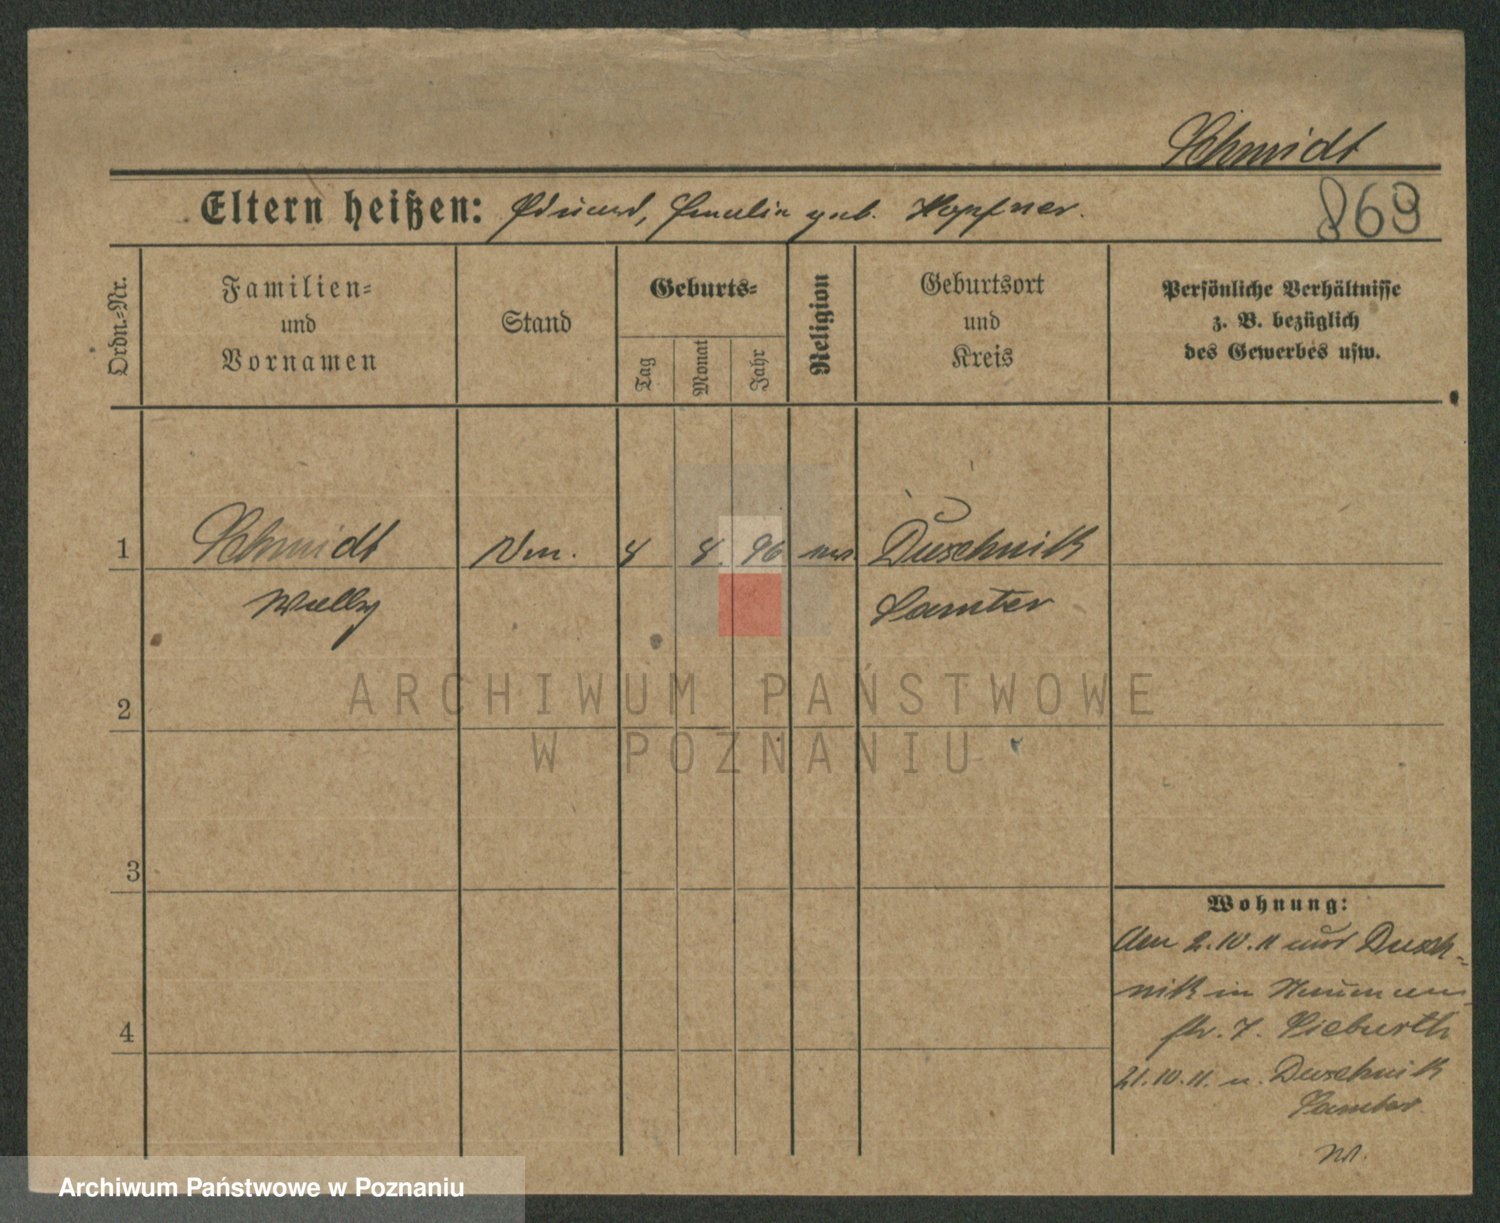 Schmidt
Eltern heißen: Eduard, Emilie geb. Hopfner.
869
Ordn.-Nr.
Familien-
und
Vornamen
Stand
Geburts-
Tag
Monat
Jahr
Religion
Geburtsort
und
Kreis
Persönliche Verhältnisse
z. B. bezüglich
des Gewerbes usw.
1 Schmidt 8 8. 96 Duschnik
Willy Samter
2
ARCHIWUM PAŃSTWOWE
W POZNANIU
3
Wohnung:
Am 2.10.11 aus Dusch-
nik in
str. 7. Sieburth
4
21.10.11. n. Duschnik
Samter.
Archiwum Państwowe w Poznaniu